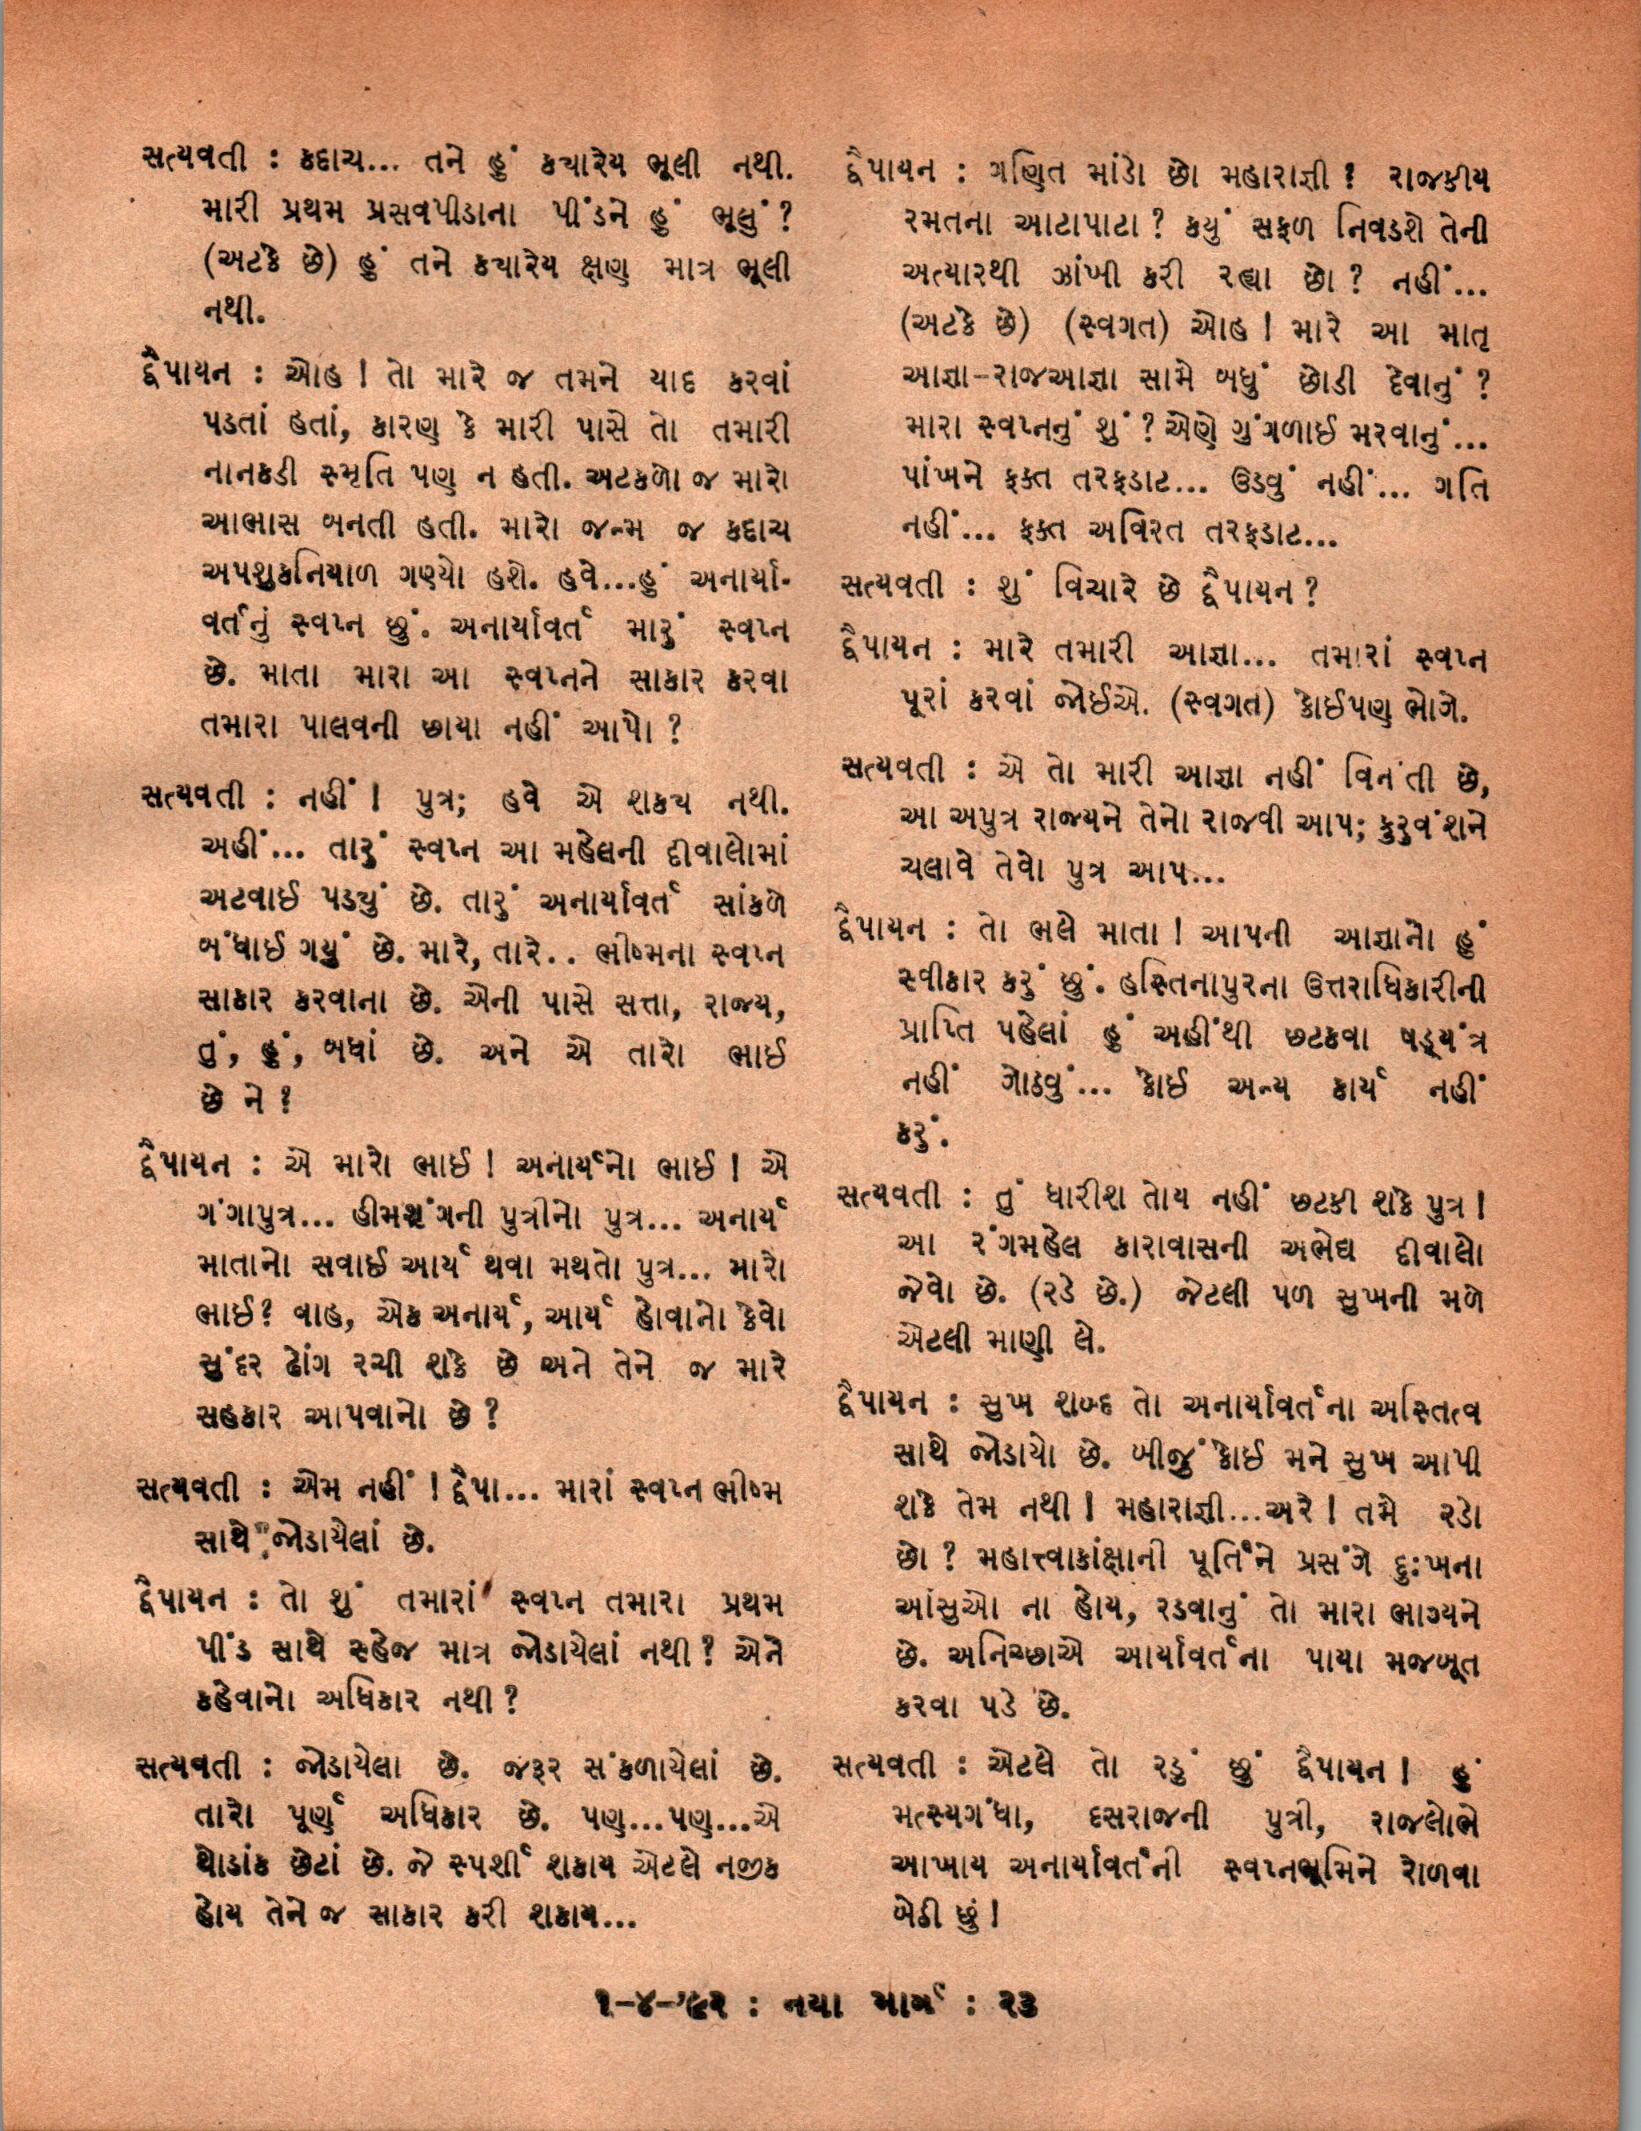 સત્યવતી : કદાચ... તને હું કચારેય ભૂલી નથી.
મારી પ્રથમ પ્રસવપીડાના પીંડને હું ભૂલું ?
(અટકે છે) હું તને કચારેય ક્ષણ માત્ર ભૂલી
નથી.
દ્વૈપાયન : ઓહ ! તો મારે જ તમને યાદ કરવાં
પડતાં હતાં, કારણ કે મારી પાસે તો તમારી
નાનકડી સ્મૃતિ પણ ન હતી. અટકળો જ મારો
આભાસ બનતી હતી. મારો જન્મ જ કદાચ
અપશુકનિયાળ ગણ્યો હશે. હવે...હું અનાર્યા-
વર્તનું સ્વપ્ન છું. અનાર્યાવર્ત મારું સ્વપ્ન
છે. માતા મારા આ સ્વપ્નને સાકાર કરવા
તમારા પાલવની છાયા નહીં આપો ?
સત્યવતી : નહીં ! પુત્ર; હવે એ શકય નથી.
અહીં... તારું સ્વપ્ન આ મહેલની દીવાલોમાં
અટવાઈ પડ્યું છે. તારું અનાર્યાવર્ત સાંકળે
બંધાઈ ગયું છે. મારે, તારે.. ભીષ્મના સ્વપ્ન
સાકાર કરવાના છે. એની પાસે સત્તા, રાજ્ય,
તું, હું, બધાં છે. અને એ તારો ભાઈ
છે ને ?
દ્વૈપાયન : એ મારો ભાઈ ! અનાર્યનો ભાઈ ! એ
ગંગાપુત્ર... હીમશૃંગની પુત્રીનો પુત્ર... અનાર્ય
માતાનો સવાઈ આર્ય થવા મથતો પુત્ર... મારો
ભાઈ? વાહ, એક અનાર્ય, આર્ય હોવાનો કેવો
સુંદર ઢોંગ રચી શકે છે અને તેને જ મારે
સહકાર આપવાનો છે ?
સત્યવતી : એમ નહીં ! દ્વૈપા... મારાં સ્વપ્ન ભીષ્મ
સાથે જોડાયેલાં છે.
દ્વૈપાયન : તો શું તમારાં સ્વપ્ન તમારા પ્રથમ
પીંડ સાથે સ્હેજ માત્ર જોડાયેલાં નથી ? એને
કહેવાનો અધિકાર નથી ?
સત્યવતી : જોડાયેલા છે. જરૂર સંકળાયેલાં છે.
તારો પૂર્ણ અધિકાર છે. પણ...પણ...એ
થોડાંક છેટાં છે. જે સ્પર્શી શકાય એટલે નજીક
હોય તેને જ સાકાર કરી શકાય...
દ્વૈપાયન : ગણિત માંડો છો મહારાજ્ઞી ! રાજકીય
રમતના આટાપાટા ? કયું સફળ નિવડશે તેની
અત્યારથી ઝાંખી કરી રહ્યા છો ? નહીં...
(અટકે છે) (સ્વગત) ઓહ ! મારે આ માતૃ
આજ્ઞા-રાજઆજ્ઞા સામે બધું છોડી દેવાનું ?
મારા સ્વપ્નનું શું ? એણે ગુંગળાઈ મરવાનું...
પાંખને ફક્ત તરફડાટ... ઉડવું નહીં... ગતિ
નહીં... ફક્ત અવિરત તરફડાટ...
સત્યવતી : શું વિચારે છે દ્વૈપાયન ?
દ્વૈપાયન : મારે તમારી આજ્ઞા... તમારાં સ્વપ્ન
પૂરાં કરવાં જોઈએ. (સ્વગત) કોઈપણ ભોગે.
સત્યવતી : એ તો મારી આજ્ઞા નહીં વિનંતી છે,
આ અપુત્ર રાજ્યને તેનો રાજવી આપ; કુરુવંશને
ચલાવે તેવો પુત્ર આપ...
દ્વૈપાયન : તો ભલે માતા ! આપની આજ્ઞાનો હું
સ્વીકાર કરું છું. હસ્તિનાપુરના ઉત્તરાધિકારીની
પ્રાપ્તિ પહેલાં હું અહીંથી છટકવા ષડ્યંત્ર
નહીં ગોઠવું... કોઈ અન્ય કાર્ય નહીં
કરું.
સત્યવતી : તું ધારીશ તોય નહીં છટકી શકે પુત્ર !
આ રંગમહેલ કારાવાસની અભેદ્ય દીવાલો
જેવો છે. (રડે છે.) જેટલી પળ સુખની મળે
એટલી માણી લે.
દ્વૈપાયન : સુખ શબ્દ તો અનાર્યાવર્તના અસ્તિત્વ
સાથે જોડાયો છે. બીજું કોઈ મને સુખ આપી
શકે તેમ નથી ! મહારાજ્ઞી...અરે ! તમે રડો
છો ? મહાત્ત્વાકાંક્ષાની પૂર્તિને પ્રસંગે દુઃખના
આંસુઓ ના હોય, રડવાનું તો મારા ભાગ્યને
છે. અનિચ્છાએ આર્યાવર્તના પાયા મજબૂત
કરવા પડે છે.
સત્યવતી : એટલે તો રડું છું દ્વૈપાયન ! હું
મત્સ્યગંધા, દસરાજની પુત્રી, રાજલોભે
આખાય અનાર્યાવર્તની સ્વપ્નભૂમિને રોળવા
બેઠી છું !
૧-૪-'૯૨ : નયા માર્ગ : ૨૩